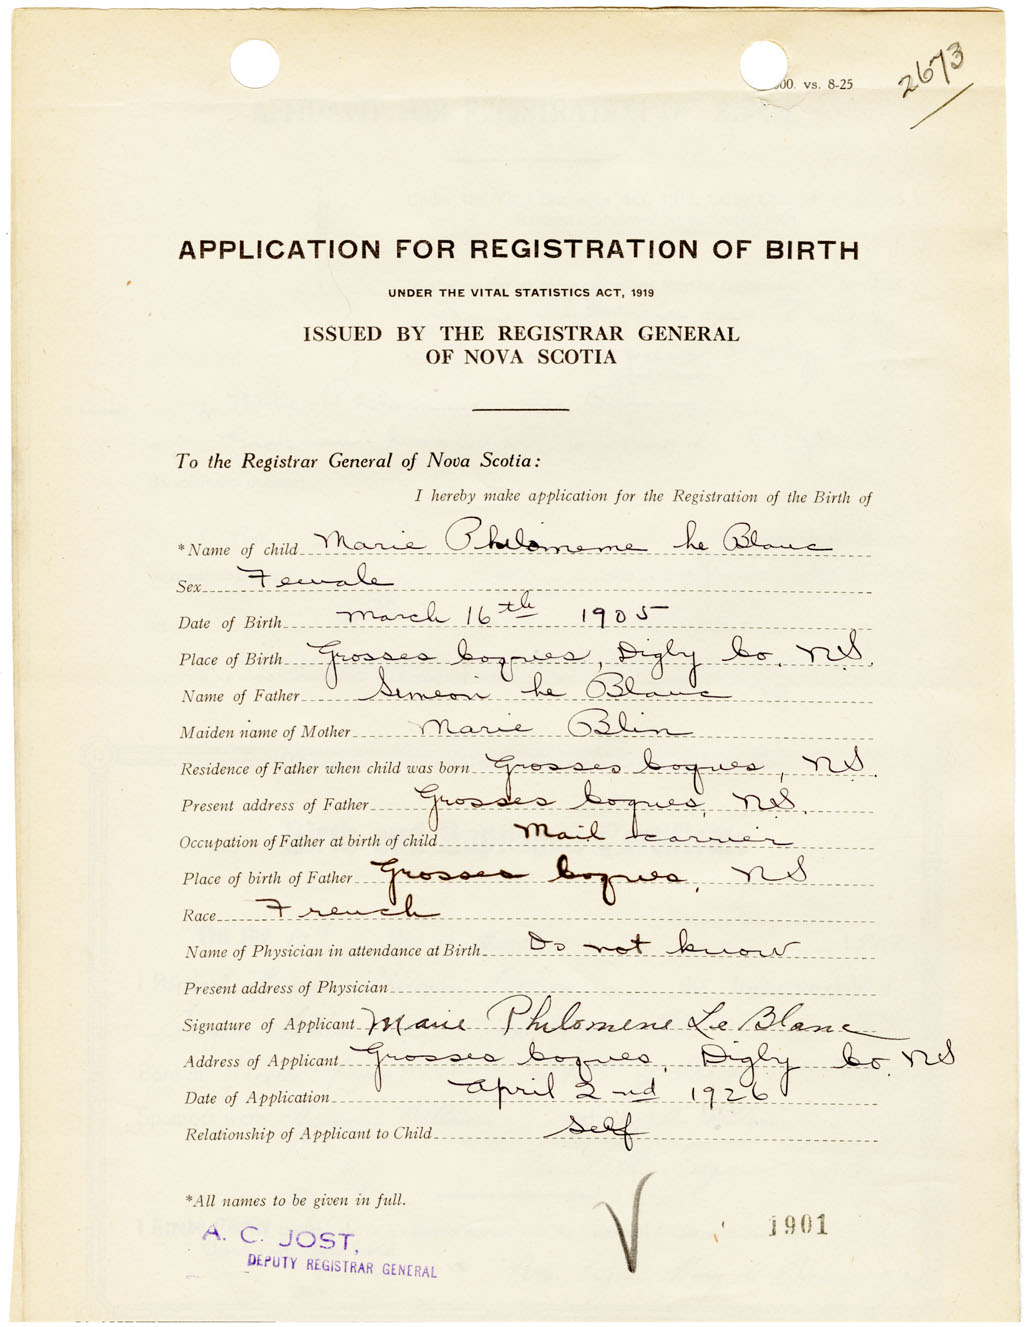 2673
00. vs. 8-25
APPLICATION FOR REGISTRATION OF BIRTH
UNDER THE VITAL STATISTICS ACT, 1919
ISSUED BY THE REGISTRAR GENERAL
OF NOVA SCOTIA
To the Registrar General of Nova Scotia:
I hereby make application for the Registration of the Birth of
*Name of child Marie Philomeme Le Blanc
Sex Female
Date of Birth March 16th 1905
Place of Birth Grosses Coques, Digby Co. N.S.
Name of Father Simeon Le Blanc
Maiden name of Mother Marie Blin
Residence of Father when child was born Grosses Coques, N.S.
Present address of Father Grosses Coques, N.S.
Occupation of Father at birth of child Mail carrier
Place of birth of Father Grosses Coques, N S
Race French
Name of Physician in attendance at Birth Do not know
Present address of Physician
Signature of Applicant Marie Philomene Le Blanc
Address of Applicant Grosses Coques, Digby Co. N S
Date of Application April 2nd 1926
Relationship of Applicant to Child Self
*All names to be given in full.
A. C. JOST,
DEPUTY REGISTRAR GENERAL
1901